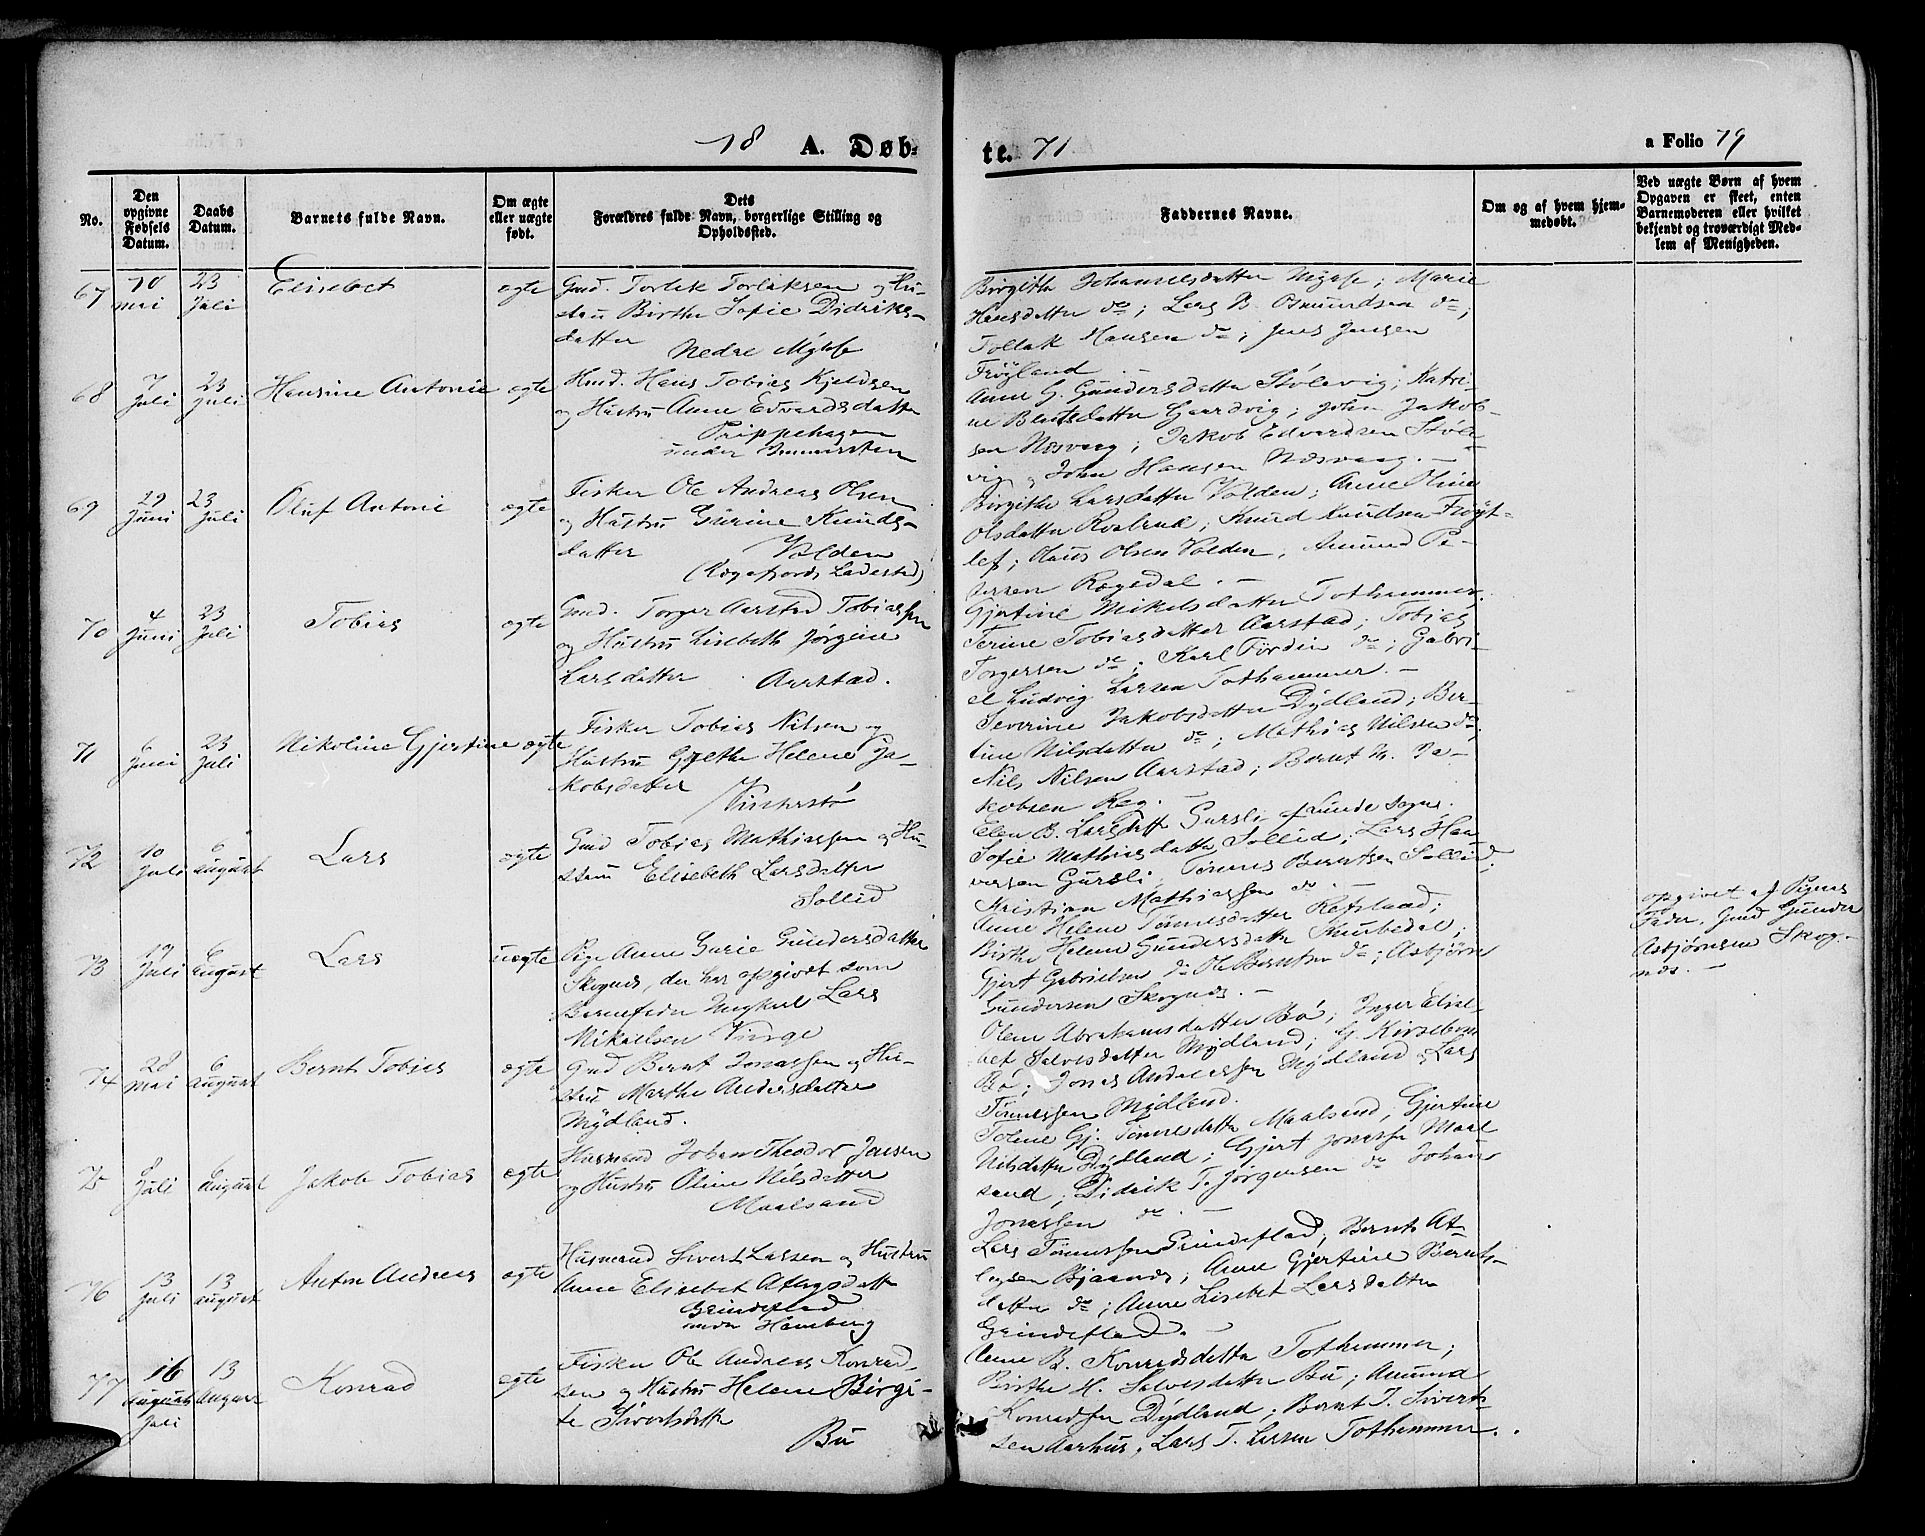 18 A. Døb-
te. 71
a Folio 79
No.
Den opgivne Fødsels Datum.
Daabs Datum.
Barnets fulde Navn.
Om ægte eller uægte født.
Dets Forældres fulde Navn, borgerlige Stilling og Opholdssted.
Faddernes Navne.
Om og af hvem hjem-
medøbt.
Ved uægte Børn af hvem
Opgaven er skeet, enten
Barnemoderen eller hvilket
bekjendt og troværdigt Med-
lem af Menigheden.
67
10 Mai
23 Juli
Elisebet
egte
Gmd. Torlak Torlaksen og Hu-
stru Birthe Sofie Didriks-
datter
Nedre Mysse
Birgitha Johannesdatter Mysse; Marie
Hansdatter do; Lars B. Osmundsen do;
Tollak Hansen do; Jens Jensen
Frøyland
68
7 Juli
23 Juli
Hansine Antonie
egte
Hmd. Hans Tobias Kjeldsen
og Hustru Anne Edvardsdatter
Prippehagen
under
Anne G. Gundersdatter Stølevig; Katri-
ne Bentsdatter Gaardvig; John Jakob-
sen Nesvaag; Jakob Edvardsen Støle-
vig og John Hansen Nesvaag. -
69
29 Juni
23 Juli
Oluf Antoni
egte
Fisker Ole Andreas Olsen
og Hustru Gurine Knuds-
datter Valden
(Rægefjords Ladested)
Birgithe Larsdatter Volden; Anne Oline
Olsdatter Roaldsnæ; Knud Knudsen Frøyt-
lef; Olaus Olsen Volden; Amund Pe-
dersen Rægedal. -
70
4 Juni
23 Juli
Tobias
egte
Gmd. Torger Aarstad Tobiassen
og Hustru Lisebeth Jørgine
Larsdatter Aarstad.
Gjertine Mikelsdatter Tothammer;
Terine Tobiasdatter Aarstad; Tobias
Torgersen do; Karl Fordin do; Gabri-
el Ludvig Larsen Tothammer. -
71
6 Juni
23 Juli
Nikoline Gjertine
egte
Fisker Tobias Nilsen og
Hustru Gyltha Helene Ja-
kobsdatter
Vintersto
Severine Jakobsdatter Dydland; Ber-
tine Nilsdatter do; Mathias Nilsen do;
Nils Nilsen Aarstad; Bernt N. Ja-
kobsen Reg. -
72
10 Juli
6 August
Lars
egte
Gmd Tobias Mathiassen og Hu-
stru Elisebeth Larsdatter
Sollid
Elen B. Larsdatter Gursli af Lunde Sogn;
Sofie Mathiasdatter Sollid; Lars Haa-
versen Gursli; Tønnes Berntsen Sollid;
Kristian Mathiassen do. -
73
19 Juli
6 August
Lars
uegte
Pige Anne Gurie Gundersdatter
Skognes, der har opgivet som
Barnefader Ungkarl Lars
Mikaelsen Vinge
Anne Helene Tønnesdatter Refsland;
Birthe Helene Gundersdatter Stubedal;
Gjert Gabrielsen do Ole Berntsen do; Asbjørn
Gundersen Skognes. -
opgivet af Pigens
Fader, Gmd Gunder
Asbjørnsen Skog-
nes. -
74
28 Mai
6 August
Bernt Tobias
egte
Gmd Bernt Jonassen og Hu-
stru Marthe Andersdatter
Mydland.
Olene Abrahamsdatter Bø; Inger Elise-
bet Salvesdatter Mydland; G. Kirsebom
Bø; Jonas Andreassen Mydland og Lars
Tønnessen Mydland.
75
8 Juli
6 August
Jakob Tobias
egte
Husmand Johan Theodor Jonsen
og Hustru Oline Nilsdatter
Maalsand
Tolene Gj. Tønnesdatter Maalsand; Gjertine
Nilsdatter Dydland; Gjert Jonassen Maal
sand; Didrik T. Jørgensen do Johan
Jonassen do. -
76
13 Juli
13 August
Anton Andreas
egte
Husmand Sivert Larsen og Hustru
Anne Elisebet Atlagsdatter
Grindeflad
under Hamberg
Lars Tønnessen Grindeflad; Bernt At-
lagsen Bjaanes; Anne Gjertine Bernts-
datter do; Anne Lisebet Larsdatter
Grindeflad. -
77
16 August Juli
13 August
Konrad
egte
Fisker Ole Andreas Konrad-
sen og Hustru Helene Birgi-
te Sivertsdatter
Bu
Anne B. Konradsdatter Tothammer;
Birthe H. Salvesdatter Bu; Amund
Konradsen Dydland; Bernt T. Sivert-
sen Aarhus; Lars T. Larsen Tothammer.